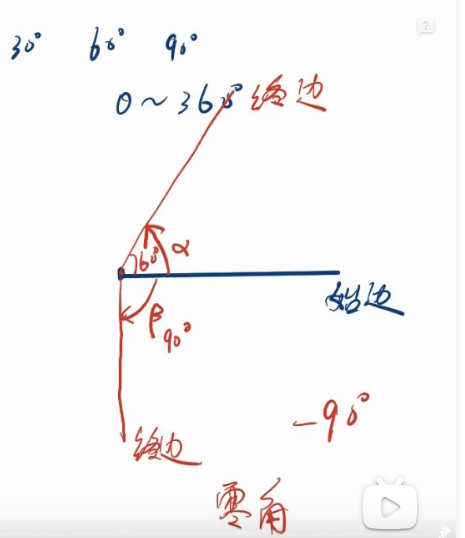 30° 60° 90°
0～360°
终边
60° α
始边
β
90°
终边
-90°
零角